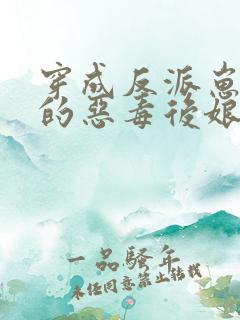 穿成反派崽
的惡毒後娘
一品騷年
未经同意禁止转载